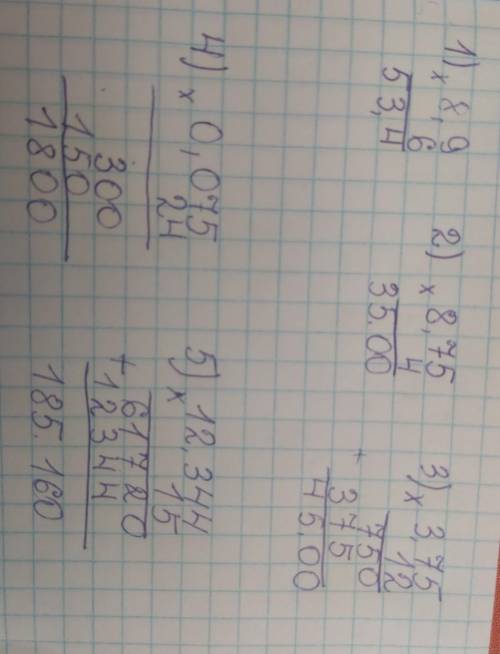 1) × 8,9
6
53,4
2) × 8,75
4
35.00
3) × 3,75
12
750
+ 375
45,00
4) × 0,075
24
300
150
1800
5) 12,344
× 15
61720
+ 12344
185.160